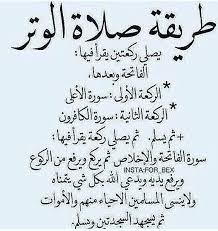 طريقة صلاة الوتر
يصلي ركعتين يقرأ فيها:
الفاتحة وبعدها.
* الركعة الأولى: سورة الأعلى
* الركعة الثانية: سورة الكافرون
+ ثم يسلم. ثم يصلي ركعة يقرأ فيها:
سورة الفاتحة والإخلاص ثم يركع ويرفع من الركوع
INSTA:FOR_BEX
ويرفع يديه ويدعي الله بكل شي يتمناه
ولا ينسى المسلمين الأحياء منهم والأموات
ثم يسجد السجدتين ويسلم.